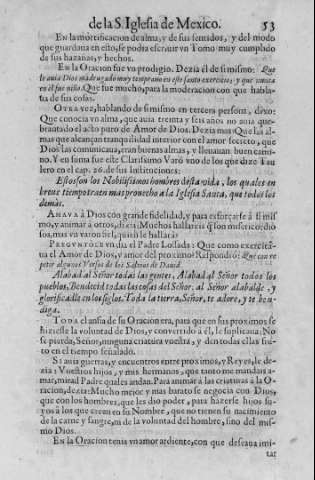 de la S. Iglesia de Mexico. 53
En la mortificacion de alma, y de sus sentidos, y del modo
que guardaua en esto, se podia escriuir vn Tomo muy cumplido
de sus hazañas, y hechos.
En la Oracion fue vn prodigio. Dezia èl de simismo: Que
le auia Dios madrugado muy temprano en este santo exercicio, y que
en el fue niño. Que fue mucho, para la moderacion con que habla-
ua de sus cosas.
Otra vez, hablando de simismo en tercera persona, dixo:
Que conocia vn alma, que auia treinta y seis años no auia que-
brantado el acto puro de Amor de Dios. Dezia mas: Que las al-
mas que alcançan tranquilidad interior con el amor secreto, que
Dios las comunicaua, eran buenas almas, y lleuauan buen cami-
no. Y en suma fue este Clarissimo Varõ vno de los que dize Tau
lero en el cap. 26. de sus Instituciones:
Estos son los Nobilissimos hombres desta vida, los quales en
breue tiempo traen mas prouecho a la Iglesia Santa, que todos los
demàs.
Amaua à Dios con grande fidelidad, y para esforçarse à si mis-
mo, y animar à otros, dezia: Muchos hallarèis q̃ son misericordio
sos, mas vn varon fiel, quiẽ le hallarà?
Preguntòle vn dia el Padre Lossada: Que como exercita-
ua el Amor de Dios, y amor del proximo? Respondiò: Que con re
petir algunos Versos de los Salmos de Dauid.
Alabad al Señor todas las gentes, Alabad al Señor todos los
pueblos. Bendecid todas las cosas del Señor, al Señor alabalde, y
glorificadle en los siglos. Toda la tierra, Señor, te adore, y te ben-
diga.
Toda el ansia de su Oracion era, para que en sus proximos se
hiziesse la voluntad de Dios, y conuertido à èl, le suplicaua: No
se pierda, Señor, ninguna criatura vuestra, y den todas ellas fru-
to en el tiempo señalado.
Si auia guerras, y encuentros entre proximos, y Reyes, le de-
zia: Vuestros hijos, y mis hermanos, que tanto me mandais a-
mar, mirad Padre quales andan. Para animar à las criaturas à la O-
racion, dezia: Mucho mejor y mas barato se negocia con Dios,
que con los hombres, que les dio poder, para hazerse hijos su-
yos à los que creen en su Nombre, que no tienen su nacimiento
de la carne y sangre, ni de la voluntad del hombre, sino del mis-
mo Dios.
En la Oracion tenia vn amor ardiente, con que deseaua imi-
tar